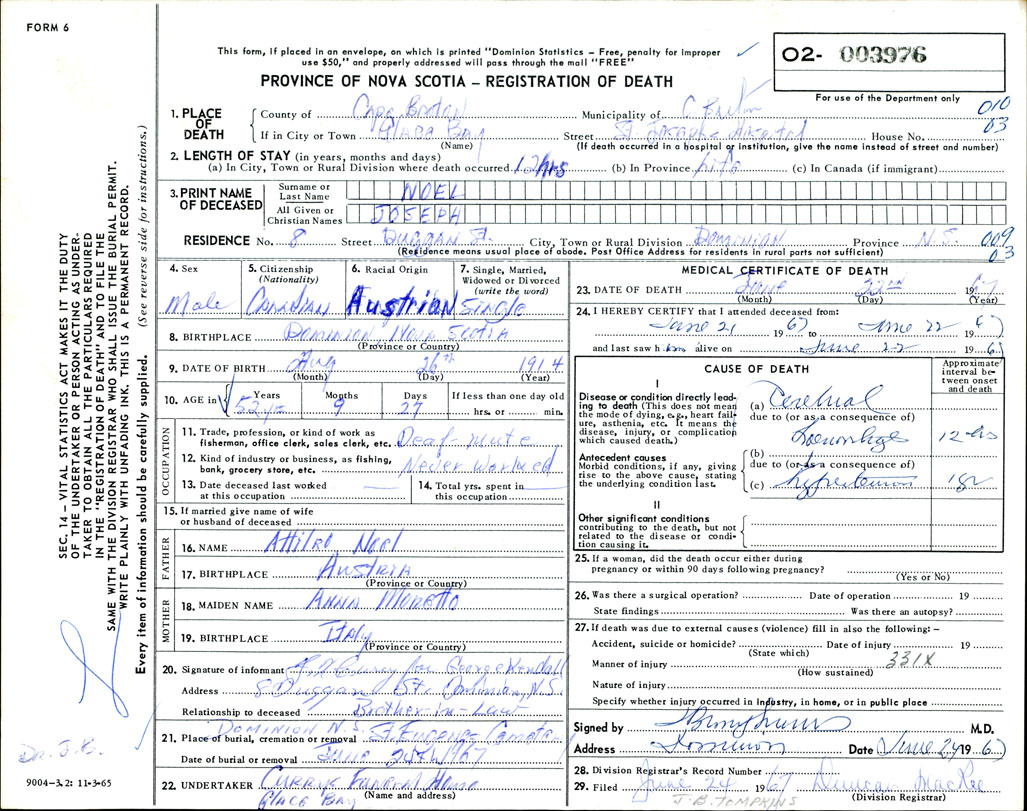 FORM 6
This form, if placed in an envelope, on which is printed "Dominion Statistics – Free, penalty for improper
use $50," and properly addressed will pass through the mail "FREE"
O2- 003976
For use of the Department only
PROVINCE OF NOVA SCOTIA – REGISTRATION OF DEATH
010
03
1. PLACE OF DEATH
County of Cape Breton Municipality of C Breton
If in City or Town Glace Bay Street St. Josephs Hospital House No.
(Name) (If death occurred in a hospital or institution, give the name instead of street and number)
2. LENGTH OF STAY (in years, months and days)
(a) In City, Town or Rural Division where death occurred 12 hrs (b) In Province Life (c) In Canada (if immigrant)
3. PRINT NAME OF DECEASED
Surname or Last Name NOEL
All Given or Christian Names JOSEPH
RESIDENCE No. 8 Street Duggan St. City, Town or Rural Division Dominion Province N.S. 009
03
(Residence means usual place of abode. Post Office Address for residents in rural parts not sufficient)
4. Sex
Male
5. Citizenship (Nationality)
Canadian
6. Racial Origin
Austrian
7. Single, Married, Widowed or Divorced (write the word)
Single
8. BIRTHPLACE Dominion, Nova Scotia
(Province or Country)
9. DATE OF BIRTH Aug 26th 1914
(Month) (Day) (Year)
10. AGE in Years Months Days If less than one day old
52 9 27 hrs. or min.
OCCUPATION
11. Trade, profession, or kind of work as
fisherman, office clerk, sales clerk, etc. Deaf-mute
12. Kind of industry or business, as fishing,
bank, grocery store, etc. Never Worked
13. Date deceased last worked
at this occupation
14. Total yrs. spent in
this occupation
15. If married give name of wife
or husband of deceased
FATHER
16. NAME Attilro Noel
17. BIRTHPLACE Austria
(Province or Country)
MOTHER
18. MAIDEN NAME Anna Moretto
19. BIRTHPLACE Italy
(Province or Country)
20. Signature of informant for George Kendall
Address 8 Duggan St. Dominion, N.S.
Relationship to deceased Brother-in-Law
21. Place of burial, cremation or removal Dominion N.S. St. Eugenes
Date of burial or removal June 1967
22. UNDERTAKER Currie Funeral Home
Glace Bay (Name and address)
MEDICAL CERTIFICATE OF DEATH
23. DATE OF DEATH June 22nd 1967
(Month) (Day) (Year)
24. I HEREBY CERTIFY that I attended deceased from:
June 21 1967 to June 22 1967
and last saw him alive on June 22 1967
CAUSE OF DEATH
Approximate interval between onset and death
I
Disease or condition directly lead-
ing to death (This does not mean
the mode of dying, e.g., heart fail-
ure, asthenia, etc. It means the
disease, injury, or complication
which caused death.)
(a) Cerebral
due to (or as a consequence of)
Hemorrhage 12 hrs
Antecedent causes
Morbid conditions, if any, giving
rise to the above cause, stating
the underlying condition last.
(b)
due to (or as a consequence of)
(c) Hypertension
II
Other significant conditions
contributing to the death, but not
related to the disease or condi-
tion causing it.
25. If a woman, did the death occur either during
pregnancy or within 90 days following pregnancy?
(Yes or No)
26. Was there a surgical operation? Date of operation 19
State findings Was there an autopsy?
27. If death was due to external causes (violence) fill in also the following: –
Accident, suicide or homicide? Date of injury 19
(State which)
331X
Manner of injury
(How sustained)
Nature of injury
Specify whether injury occurred in industry, in home, or in public place
Signed by M.D.
Address Dominion Date June 24 1967
28. Division Registrar's Record Number
29. Filed June 24 1967 Duncan MacRae
J.B. TOMPKINS (Division Registrar)
SEC. 14 – VITAL STATISTICS ACT MAKES IT THE DUTY
OF THE UNDERTAKER OR PERSON ACTING AS UNDER-
TAKER TO OBTAIN ALL THE PARTICULARS REQUIRED
IN THE "REGISTRATION OF DEATH" AND TO FILE THE
SAME WITH THE DIVISION REGISTRAR WHO SHALL ISSUE THE BURIAL PERMIT.
WRITE PLAINLY WITH UNFADING INK. THIS IS A PERMANENT RECORD.
Every item of information should be carefully supplied. (See reverse side for instructions.)
9004-3.2: 11-3-65